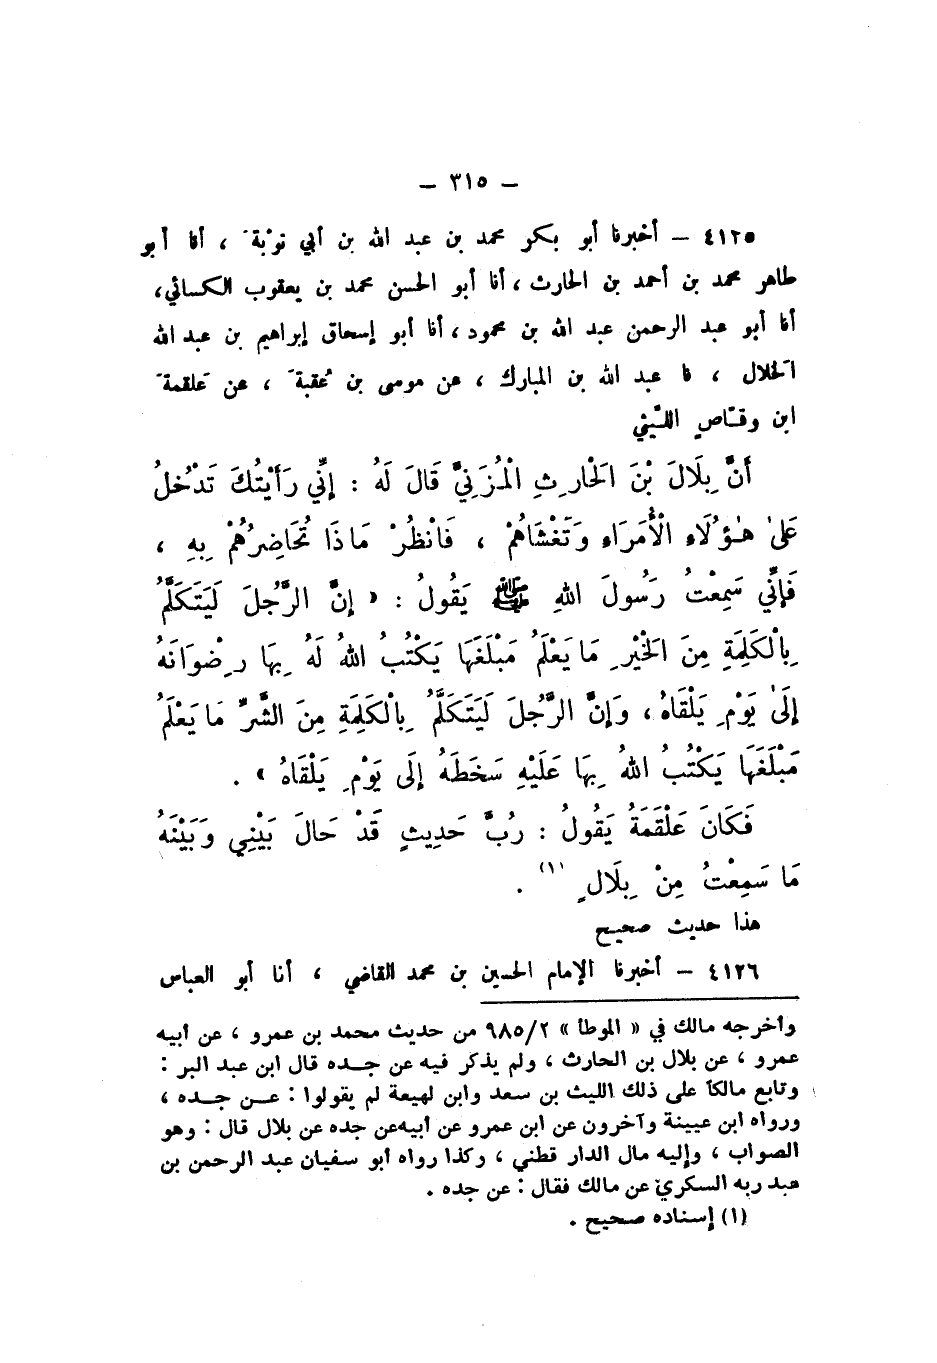 – ٣١٥ –
٤١٢٥ – أخبرنا أبو بكر محمد بن عبد الله بن أبي توْبةَ ، أنا أبو
طاهر محمد بن أحمد بن الحارث ، أنا أبو الحسن محمد بن يعقوب الكسائي ،
أنا أبو عبد الرحمن عبد الله بن محمود ، أنا أبو إسحاق إبراهيم بن عبد الله
الخَلال ، نا عبد الله بن المبارك ، عن موسى بن عُقبةَ ، عن عَلقمةَ
ابن وقّاصٍ الليّثي
أَنَّ بِلَالَ بْنَ الْحَارِثِ الْمُزَنِيَّ قَالَ لَهُ : إِنِّي رَأَيْتُكَ تَدْخُلُ
عَلَىٰ هٰؤُلَاءِ الْأُمَرَاءِ وَتَغْشَاهُمْ ، فَانْظُرْ مَاذَا تُحَاضِرُهُمْ بِهِ ،
فَإِنِّي سَمِعْتُ رَسُولَ اللهِ ﷺ يَقُولُ : « إِنَّ الرَّجُلَ لَيَتَكَلَّمُ
بِالْكَلِمَةِ مِنَ الْخَيْرِ مَا يَعْلَمُ مَبْلَغَهَا يَكْتُبُ اللهُ لَهُ بِهَا رِضْوَانَهُ
إِلَىٰ يَوْمِ يَلْقَاهُ ، وَإِنَّ الرَّجُلَ لَيَتَكَلَّمُ بِالْكَلِمَةِ مِنَ الشَّرِّ مَا يَعْلَمُ
مَبْلَغَهَا يَكْتُبُ اللهُ بِهَا عَلَيْهِ سَخَطَهُ إِلَى يَوْمِ يَلْقَاهُ » .
فَكَانَ عَلْقَمَةُ يَقُولُ : رُبَّ حَدِيثٍ قَدْ حَالَ بَيْنِي وَبَيْنَهُ
مَا سَمِعْتُ مِنْ بِلَالٍ (١) .
هذا حديث صحيح
٤١٢٦ – أخبرنا الإمام الحسين بن محمد القاضي ، أنا أبو العباس
وأخرجه مالك في « الموطأ » ٩٨٥/٢ من حديث محمد بن عمرو ، عن أبيه
عمرو ، عن بلال بن الحارث ، ولم يذكر فيه عن جده قال ابن عبد البر :
وتابع مالكاً على ذلك الليث بن سعد وابن لهيعة لم يقولوا : عن جده ،
ورواه ابن عيينة وآخرون عن ابن عمرو عن أبيه عن جده عن بلال قال : وهو
الصواب ، وإليه مال الدار قطني ، وكذا رواه أبو سفيان عبد الرحمن بن
عبد ربه السكري عن مالك فقال : عن جده .
(١) إسناده صحيح .